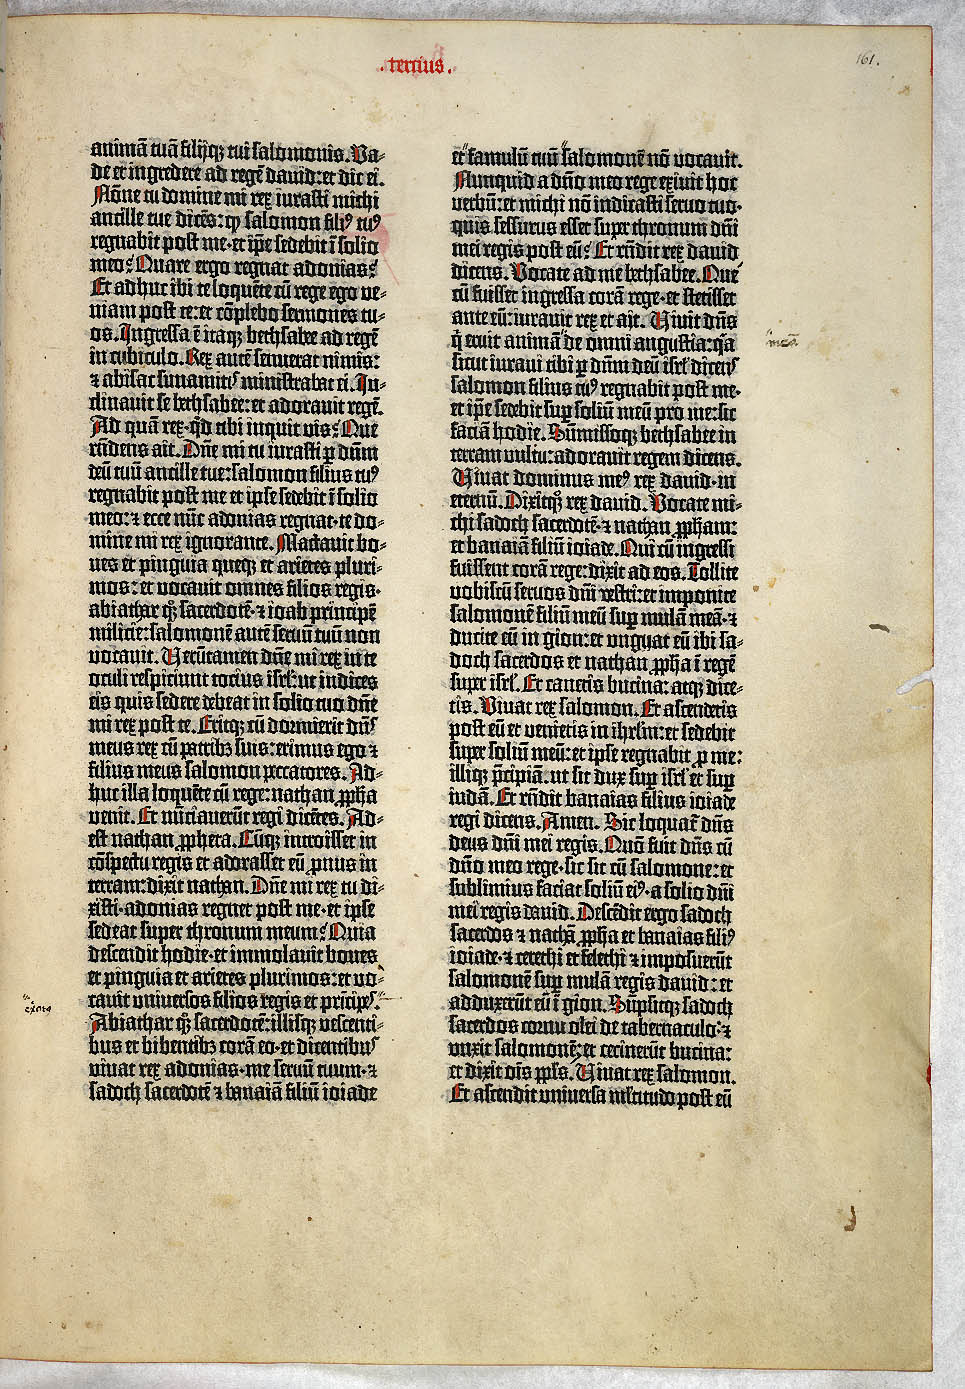 ·tercius.
161.
animā tuā filijq; tui salomonis. Va-
de et ingredere ad regē dauid: et dic ei.
Nōne tu domine mi rex iurasti michi
ancille tue dicēs: q salomon filiꝰ tuꝰ
regnabit post me·et ip̄e sedebit ī solio
meo? Quare ergo regnat adonias?
Et adhuc ibi te loquēte cū rege ego ve-
niam post te: et cōplebo sermones tu-
os. Ingressa ē itaq; bethsabee ad regē
in cubiculo. Rex autē senuerat nimis:
⁊ abisac sunamitis ministrabat ei. In-
clinauit se bethsabee: et adorauit regē.
Ad quā rex·qd tibi inquit vis? Que
rn̄dens ait. Dn̄e mi tu iurasti ꝑ dn̄m
deū tuū ancille tue: salomon filius tuꝰ
regnabit post me et ipse sedebit ī solio
meo: ⁊ ecce nūc adonias regnat·te do-
mine mi rex ignorante. Mactauit bo-
ues et pinguia queq; et arietes pluri-
mos: et vocauit omnes filios regis·
abiathar q̄; sacerdotē·⁊ ioab principē
milicie: salomonē autē seruū tuū non
vocauit. Verūtamen dn̄e mi rex in te
oculi respiciunt tocius isrl̄: ut indices
eis quis sedere debeat in solio tuo dn̄e
mi rex post te. Eritq; cū dormierit dn̄s
meus rex cū patribꝫ suis: erimus ego ⁊
filius meus salomon peccatores. Ad-
huc illa loquēte cū rege: nathan ꝓpha
venit. Et nūciauerūt regi dicētes. Ad-
est nathan ꝓpheta. Cūq; introisset in
cōspectu regis et adorasset eū ꝓnus in
terram: dixit nathan. Dn̄e mi rex tu di-
xisti·adonias regnet post me·et ipse
sedeat super thronum meum? Quia
descendit hodie·et immolauit boues
et pinguia et arietes plurimos: et vo-
cauit vniuersos filios regis et prīcipes·
Abiathar q̄; sacerdotē: illisq; vescenti-
bus et bibentibꝫ corā eo·et dicentibus
viuat rex adonias·me seruū tuum·⁊
sadoch sacerdotē ⁊ banaiā filiū ioiade
et famulū tuū salomonē nō vocauit.
Nunquid a dn̄o meo rege exiuit hoc
verbū: et michi nō indicasti seruo tuo·
quis sessurus esset super thronum dn̄i
mei regis post eū? Et rn̄dit rex dauid
dicens. Vocate ad me bethsabee. Que
cū fuisset ingressa corā rege·et stetisset
ante eū: iurauit rex et ait. Viuit dn̄s
q̄ eruit animā de omni angustia: q̄a
sicut iuraui tibi ꝑ dn̄m deū isrl̄ dicens
salomon filius tuꝰ regnabit post me·
et ip̄e sedebit suꝑ soliū meū pro me: sic
faciā hodie. Sūmissoq; bethsabee in
terram vultu: adorauit regem dicens.
Viuat dominus meꝰ rex dauid·in
eternū. Dixitq; rex dauid. Vocate mi-
chi sadoch sacerdotē·⁊ nathan ꝓpham:
et banaiā filiū ioiade. Qui cū ingressi
fuissent corā rege: dixit ad eos. Tollite
vobiscū seruos dn̄i vestri: et imponite
salomonē filiū meū suꝑ mulā meā·⁊
ducite eū in gion: et vngat eū ibi sa-
doch sacerdos et nathan ꝓpha ī regē
super isrl̄. Et canetis bucina: atq; dice-
tis. Viuat rex salomon. Et ascendetis
post eū et venietis in ihrlm: et sedebit
super soliū meū: et ipse regnabit ꝓ me:
illiq; p̄cipiā·ut sit dux suꝑ isrl̄ et suꝑ
iudā. Et rn̄dit banaias filius ioiade
regi dicens. Amen. Sic loquat̄ dn̄s
deus dn̄i mei regis. Quō fuit dn̄s cū
dn̄o meo rege·sic sit cū salomone: et
sublimius faciat soliū eiꝰ·a solio dn̄i
mei regis dauid. Descēdit ergo sadoch
sacerdos ⁊ nathā ꝓpha et banaias filiꝰ
ioiade·⁊ cerethi et felethi ⁊ imposuerūt
salomonē suꝑ mulā regis dauid: et
adduxerūt eū ī gion. Sūpsitq; sadoch
sacerdos cornu olei de tabernaculo: ⁊
vnxit salomonē: et cecinerūt bucina:
et dixit oīs ppl̄s. Viuat rex salomon.
Et ascendit vniuersa ml̄titudo post eū